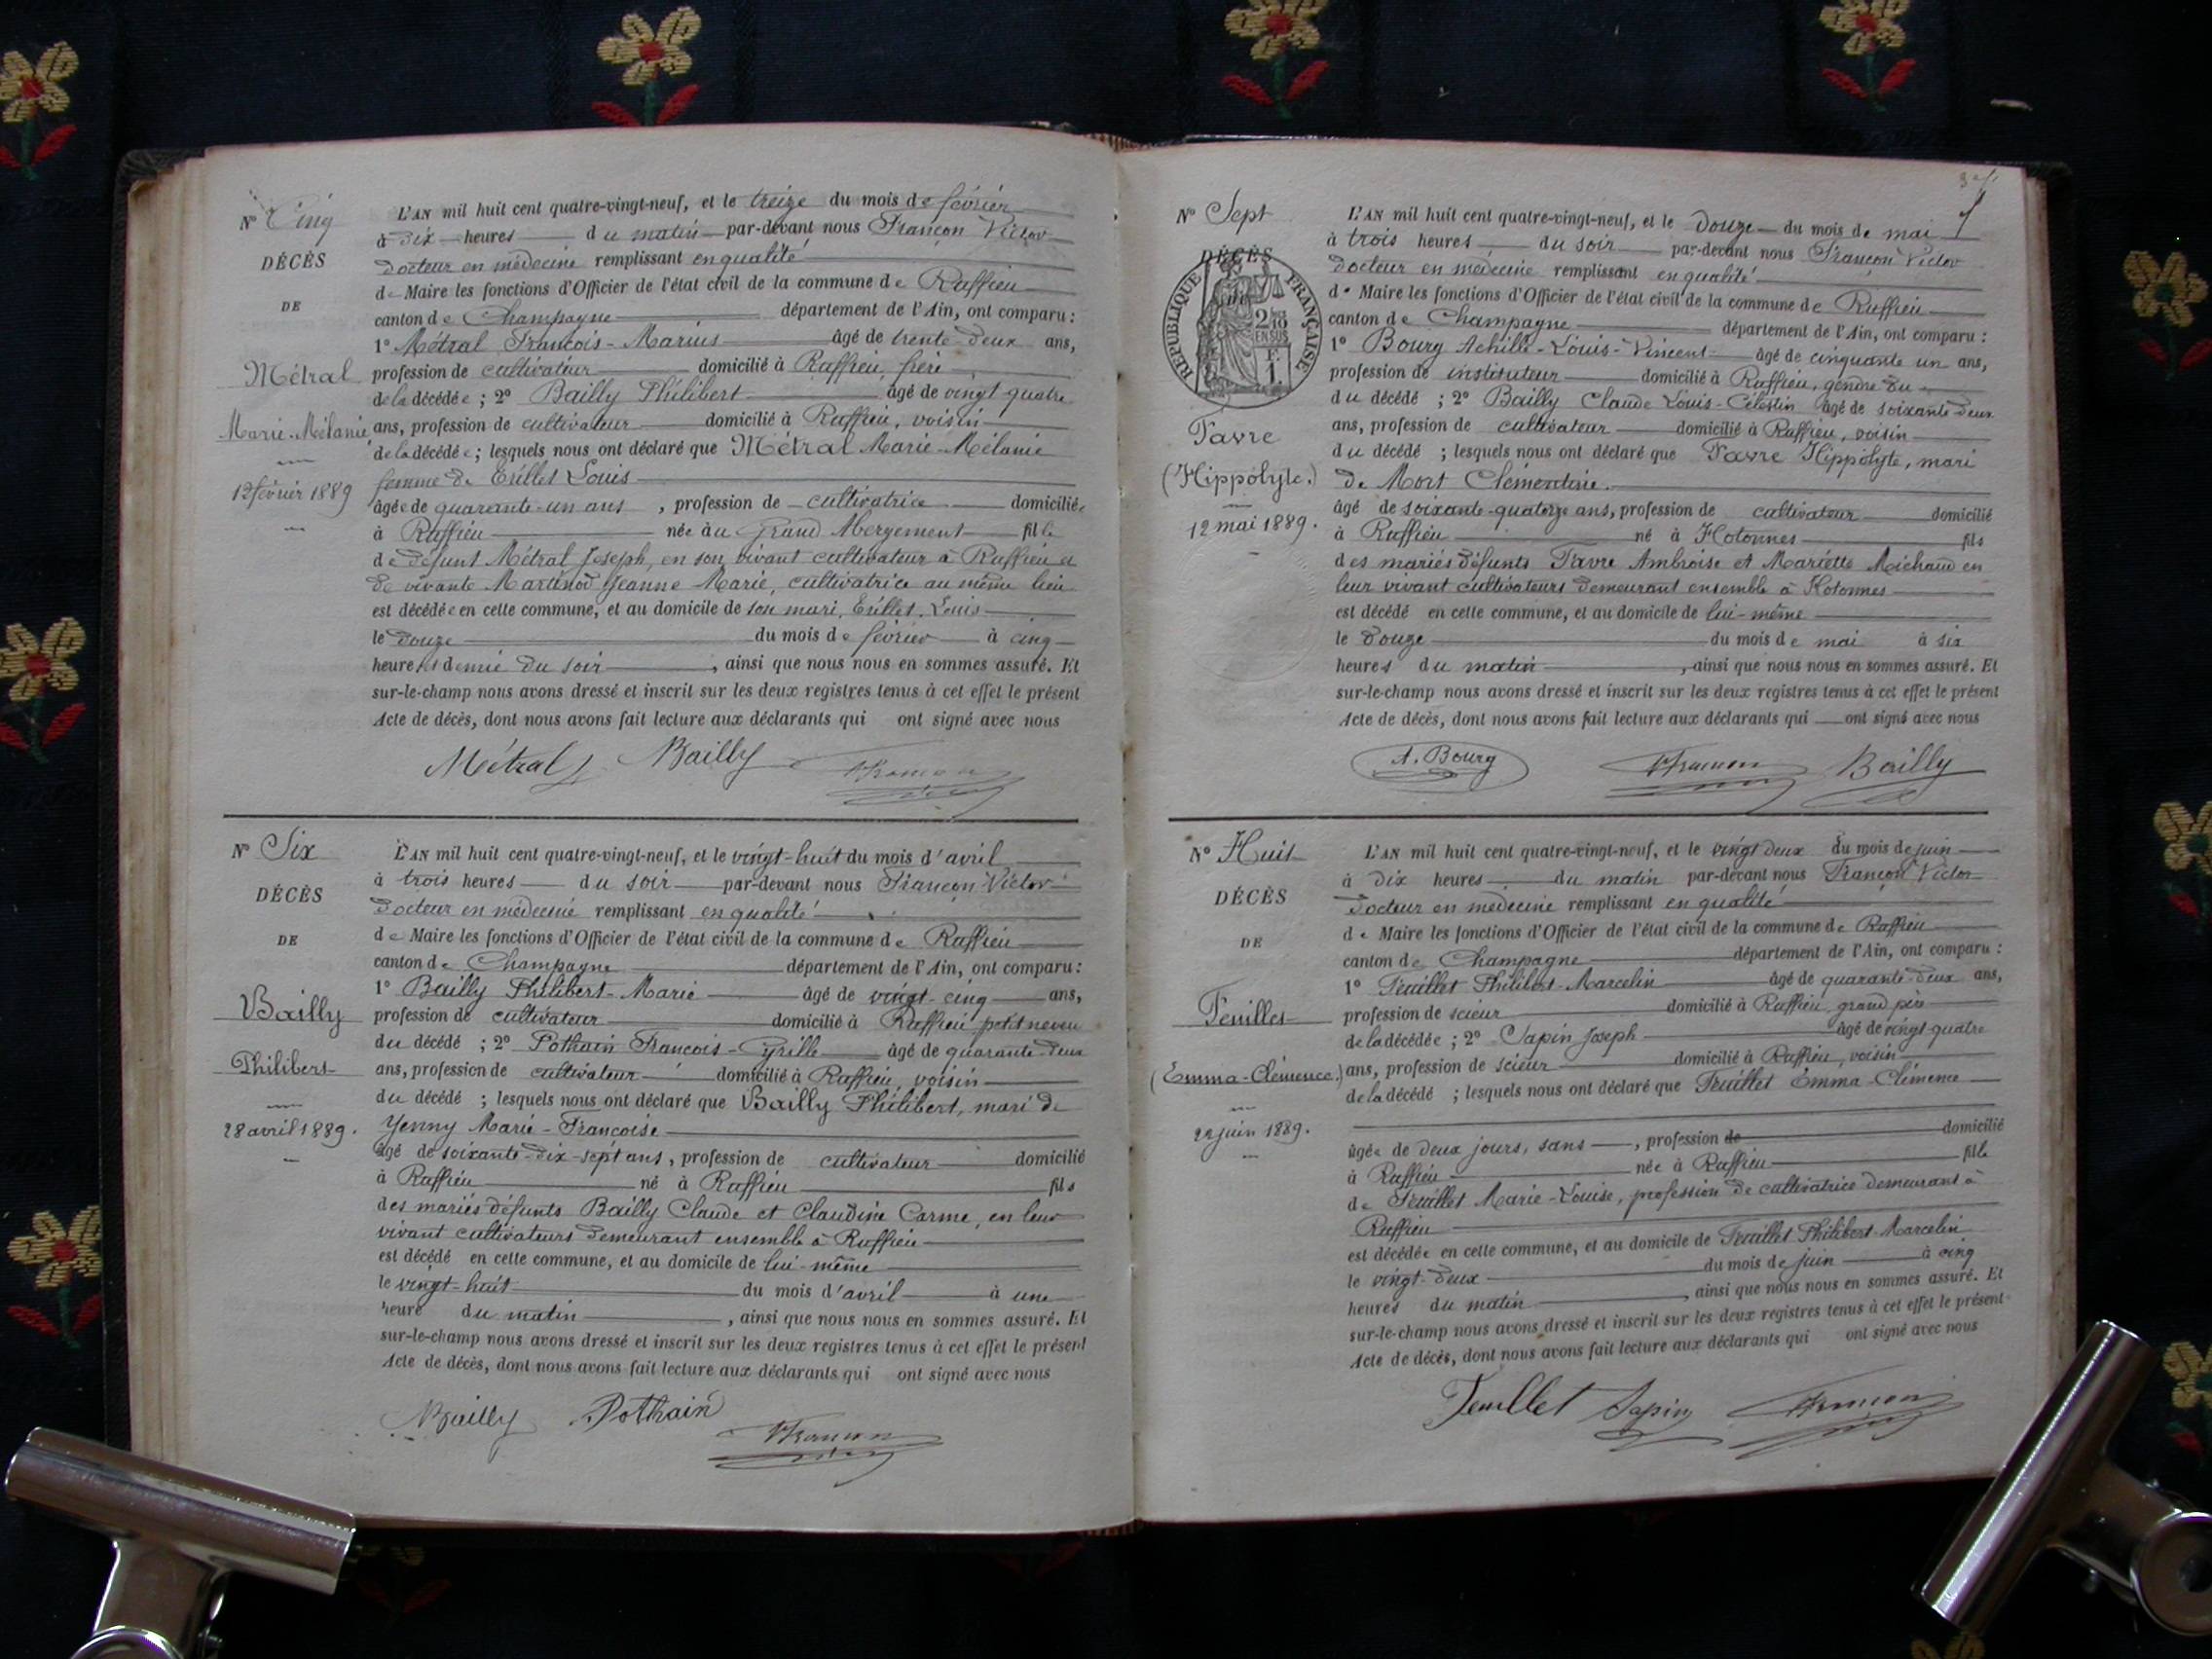 N° Cinq
DÉCÈS
DE
Métral
Marie-Mélanie
12 février 1889
L'AN mil huit cent quatre-vingt-neuf, et le treize du mois de février
à dix heures du matin par-devant nous Françon Victor
docteur en médecine remplissant en qualité
de Maire les fonctions d'Officier de l'état civil de la commune de Ruffieu
canton de Champagne département de l'Ain, ont comparu :
1° Métral François-Marius âgé de trente-deux ans,
profession de cultivateur domicilié à Ruffieu, frère
de la décédée ; 2° Bailly Philibert âgé de vingt quatre
ans, profession de cultivateur domicilié à Ruffieu, voisin
de la décédée ; lesquels nous ont déclaré que Métral Marie-Mélanie
femme de Louis
âgée de quarante-un ans, profession de cultivatrice domiciliée
à Ruffieu née au Grand Abergement fille
de défunt Métral Joseph, en son vivant cultivateur à Ruffieu et
de vivante Martinod Jeanne Marie, cultivatrice au même lieu
est décédée en cette commune, et au domicile de son mari, Louis
le douze du mois de février à cinq
heures et demie du soir, ainsi que nous nous en sommes assuré. Et
sur-le-champ nous avons dressé et inscrit sur les deux registres tenus à cet effet le présent
Acte de décès, dont nous avons fait lecture aux déclarants qui ont signé avec nous
Métral Bailly VFrançon
N° Six
DÉCÈS
DE
Bailly
Philibert
28 avril 1889.
L'AN mil huit cent quatre-vingt-neuf, et le vingt-huit du mois d'avril
à trois heures du soir par-devant nous Françon Victor
docteur en médecine remplissant en qualité
de Maire les fonctions d'Officier de l'état civil de la commune de Ruffieu
canton de Champagne département de l'Ain, ont comparu :
1° Bailly Philibert-Marie âgé de vingt-cinq ans,
profession de cultivateur domicilié à Ruffieu petit neveu
du décédé ; 2° Pothain François-Cyrille âgé de quarante-deux
ans, profession de cultivateur domicilié à Ruffieu, voisin
du décédé ; lesquels nous ont déclaré que Bailly Philibert, mari de
Yenny Marie-Françoise
âgé de soixante-dix-sept ans, profession de cultivateur domicilié
à Ruffieu né à Ruffieu fils
des mariés défunts Bailly Claude et Claudine Carme, en leur
vivant cultivateurs demeurant ensemble à Ruffieu
est décédé en cette commune, et au domicile de lui-même
le vingt-huit du mois d'avril à une
heure du matin, ainsi que nous nous en sommes assuré. Et
sur-le-champ nous avons dressé et inscrit sur les deux registres tenus à cet effet le présent
Acte de décès, dont nous avons fait lecture aux déclarants qui ont signé avec nous
Bailly Pothain VFrançon
N° Sept
DÉCÈS
DE
RÉPUBLIQUE FRANÇAISE
2/10 EN SUS
F. 1.
Favre
(Hippolyte.)
12 mai 1889.
L'AN mil huit cent quatre-vingt-neuf, et le douze du mois de mai
à trois heures du soir par-devant nous Françon Victor
docteur en médecine remplissant en qualité
de Maire les fonctions d'Officier de l'état civil de la commune de Ruffieu
canton de Champagne département de l'Ain, ont comparu :
1° Bourg Achille-Louis-Vincent âgé de cinquante un ans,
profession de instituteur domicilié à Ruffieu, gendre du
du décédé ; 2° Bailly Claude Louis-Célestin âgé de soixante-deux
ans, profession de cultivateur domicilié à Ruffieu, voisin
du décédé ; lesquels nous ont déclaré que Favre Hippolyte, mari
de Mort Clémentine.
âgé de soixante-quatorze ans, profession de cultivateur domicilié
à Ruffieu né à Hotonnes fils
des mariés défunts Favre Ambroise et Mariette Michaud en
leur vivant cultivateurs demeurant ensemble à Hotonnes
est décédé en cette commune, et au domicile de lui-même
le douze du mois de mai à six
heures du matin, ainsi que nous nous en sommes assuré. Et
sur-le-champ nous avons dressé et inscrit sur les deux registres tenus à cet effet le présent
Acte de décès, dont nous avons fait lecture aux déclarants qui ont signé avec nous
A. Bourg VFrançon Bailly
N° Huit
DÉCÈS
DE
Feuillet
(Emma-Clémence.)
22 juin 1889.
L'AN mil huit cent quatre-vingt-neuf, et le vingt deux du mois de juin
à dix heures du matin par-devant nous Françon Victor
docteur en médecine remplissant en qualité
de Maire les fonctions d'Officier de l'état civil de la commune de Ruffieu
canton de Champagne département de l'Ain, ont comparu :
1° Feuillet Philibert-Marcelin âgé de quarante-deux ans,
profession de scieur domicilié à Ruffieu grand père
de la décédée ; 2° Sapin Joseph âgé de vingt quatre
ans, profession de scieur domicilié à Ruffieu, voisin
de la décédée ; lesquels nous ont déclaré que Feuillet Emma-Clémence
âgée de deux jours, sans, profession de domicilié
à Ruffieu née à Ruffieu fille
de Feuillet Marie-Louise, profession de cultivatrice demeurant à
Ruffieu
est décédée en cette commune, et au domicile de Feuillet Philibert-Marcelin
le vingt-deux du mois de juin à cinq
heures du matin, ainsi que nous nous en sommes assuré. Et
sur-le-champ nous avons dressé et inscrit sur les deux registres tenus à cet effet le présent
Acte de décès, dont nous avons fait lecture aux déclarants qui ont signé avec nous
Feuillet Sapin VFrançon